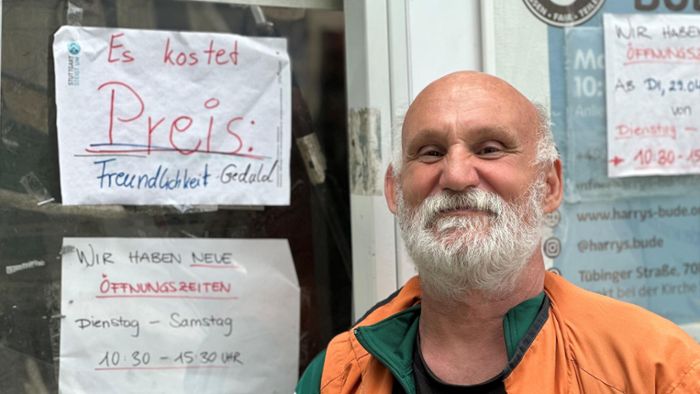 Es kostet
Preis:
Freundlichkeit Geduld
STUTTGART
WIR HABEN NEUE
ÖFFNUNGSZEITEN
Dienstag – Samstag
10:30 – 15:30 UHR
BUDE
WIR HABEN
ÖFFNUNGSZE
AB DI, 29.04
VON
DIENSTAG -
10:30 - 15
Mo
10:
www.harrys-bude.or
@harrys.bude
Tübinger Straße, 70
kt bei der Kirche